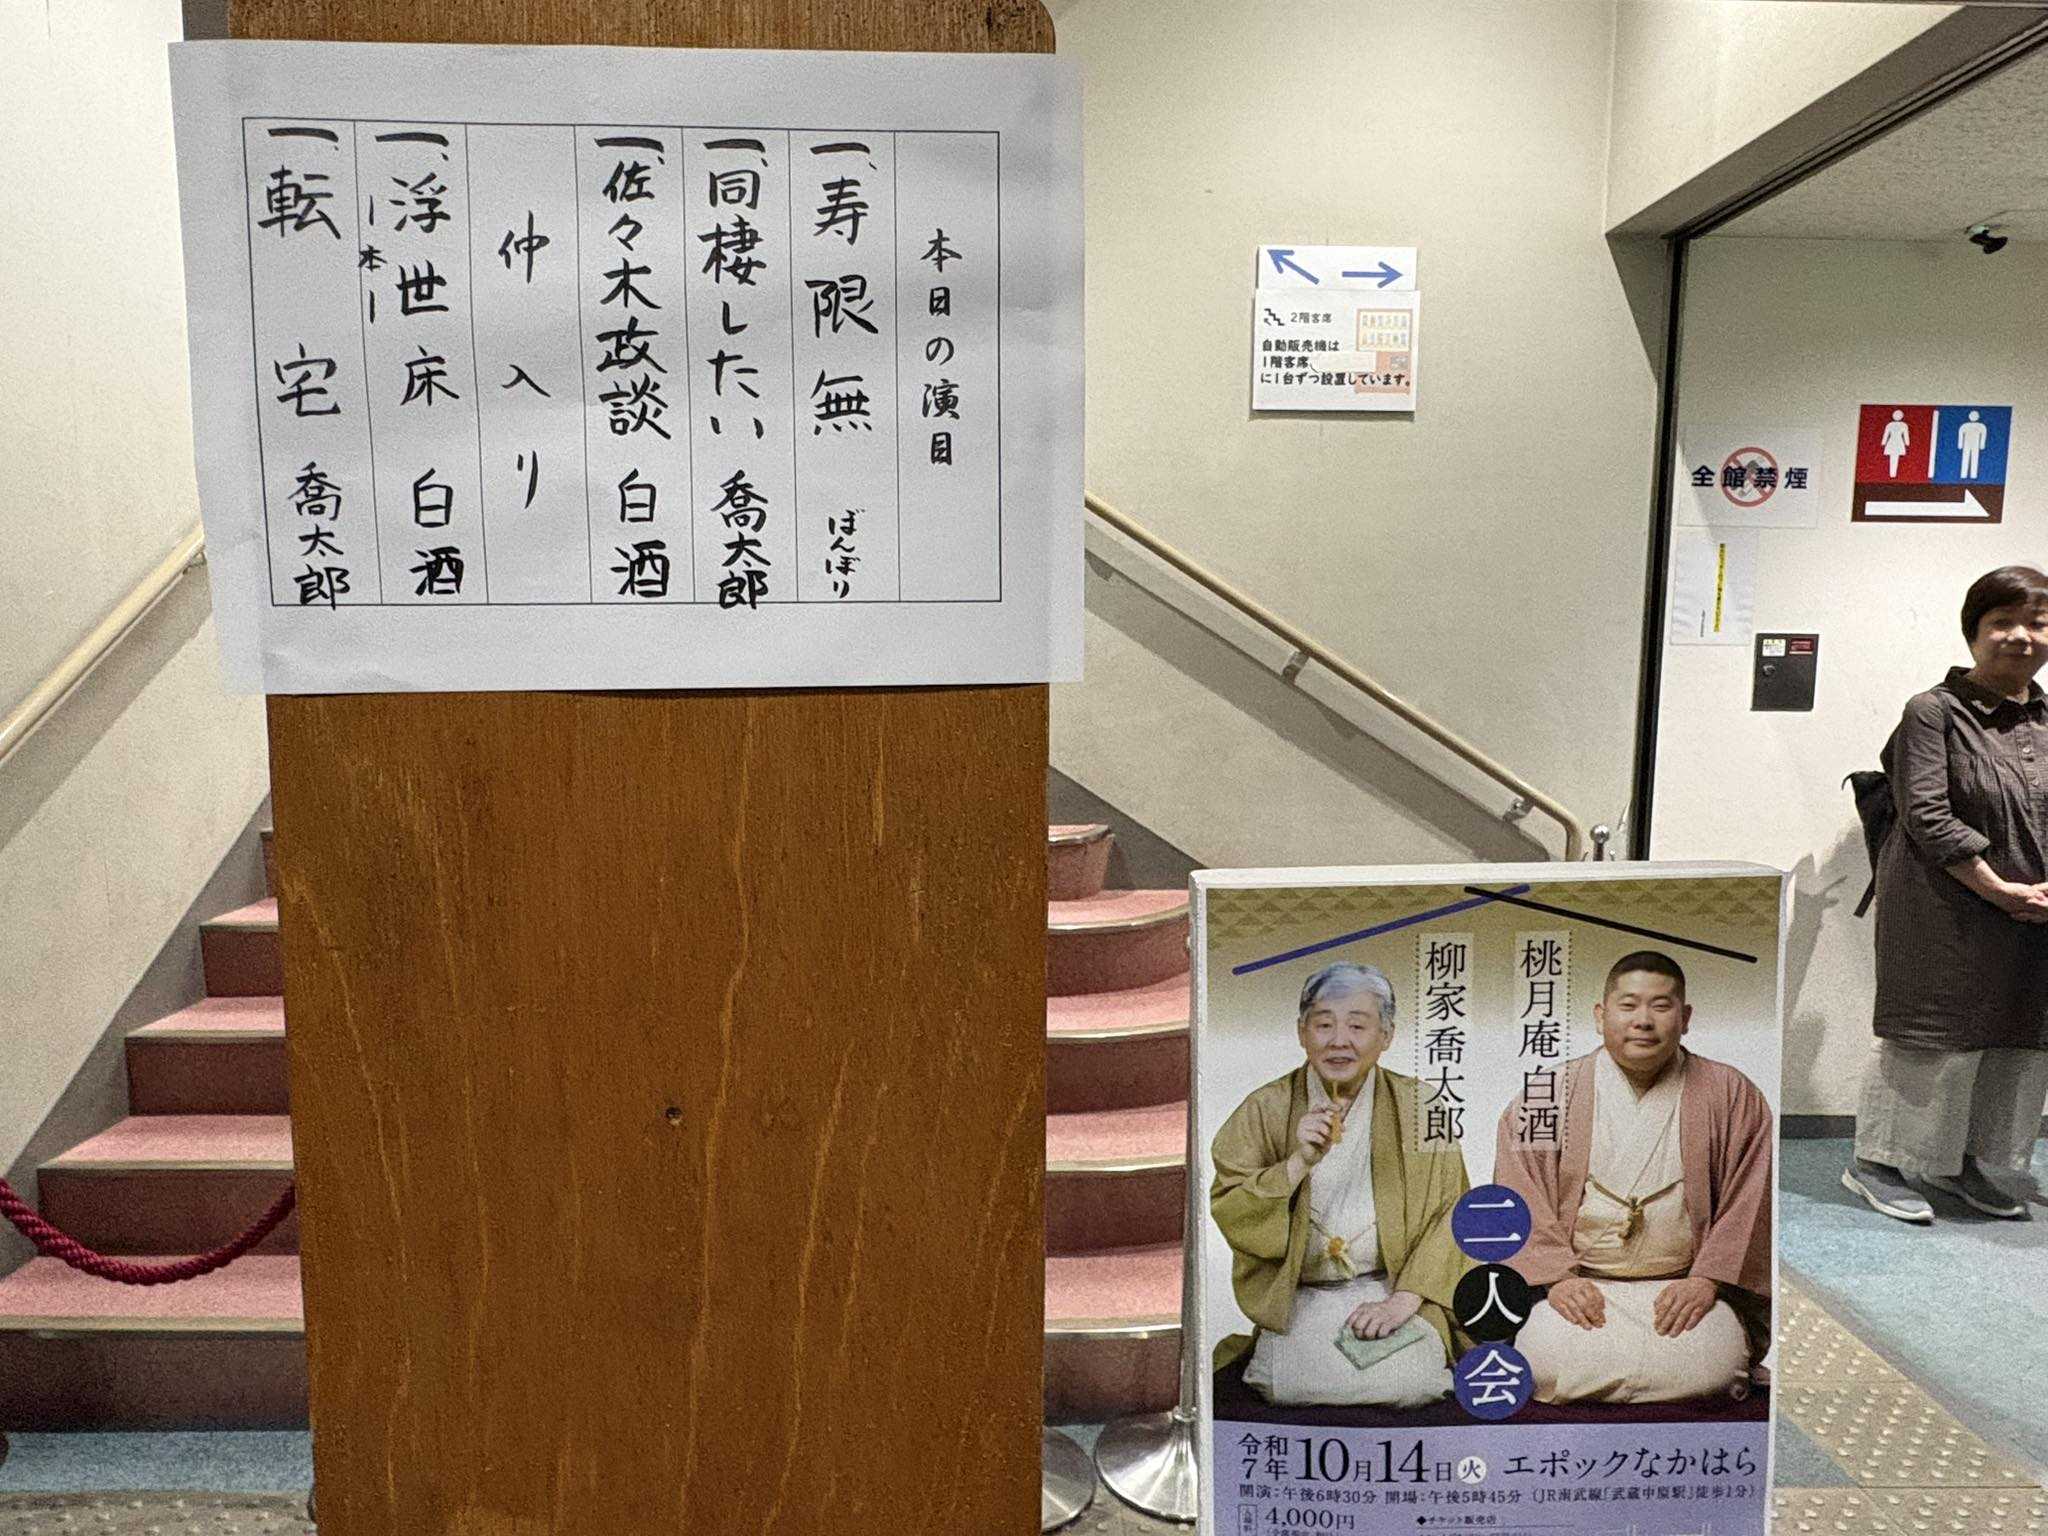 本日の演目
一、寿限無 ぼんぼり
一、同棲したい 喬太郎
一、佐々木政談 白酒
仲入り
一、浮世床 ー本ー 白酒
一、転宅 喬太郎
2階客席
自動販売機は
1階客席、
に1台ずつ設置しています。
全館禁煙
桃月庵白酒
柳家喬太郎
二人会
令和7年10月14日火 エポックなかはら
開演:午後6時30分 開場:午後5時45分 (JR南武線「武蔵中原駅」徒歩1分)
4,000円
◆チケット販売店